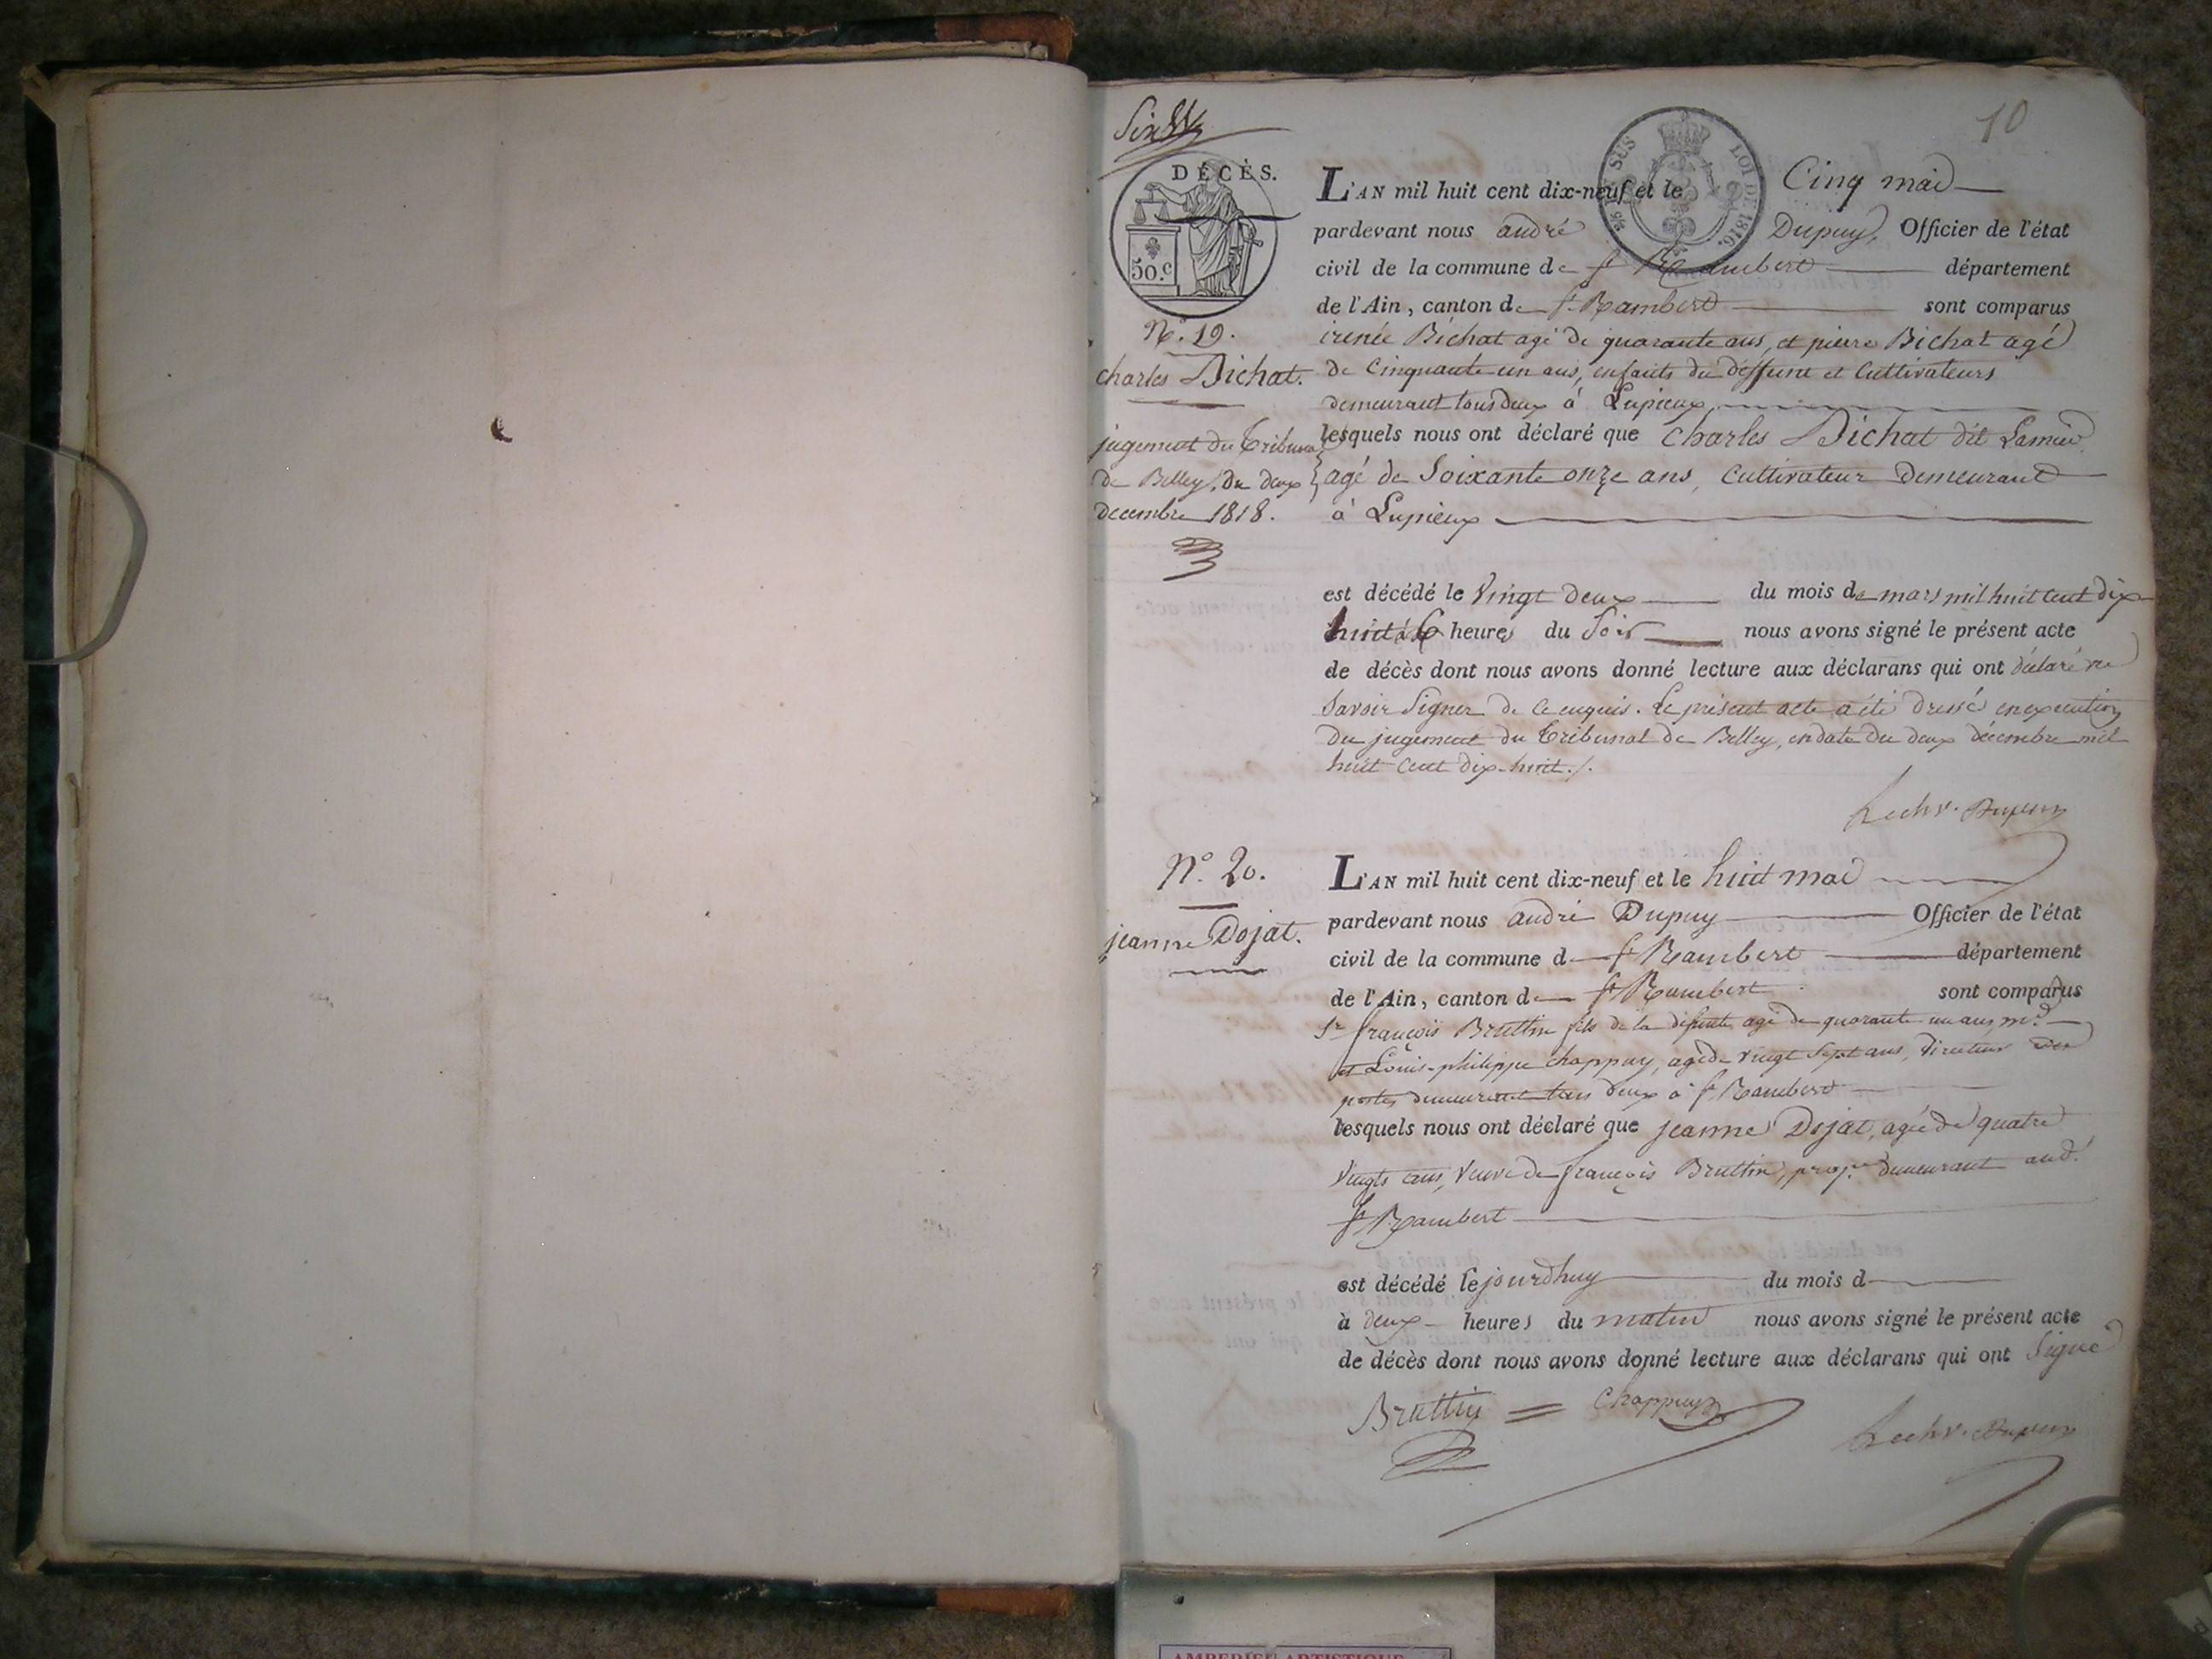 Six
10
DÉCÈS.
50.c
SUS
LOI DE 1816.
L'AN mil huit cent dix-neuf et le Cinq mai
pardevant nous andré Dupuy, Officier de l'état
civil de la commune de St Rambert département
de l'Ain, canton de St Rambert sont comparus
N.o 19.
charles Bichat.
jugement du tribunal
de Belley, du deux
decembre 1818.
irenée Bichat agé de quarante ans, et pierre Bichat agé
de Cinquante un ans, enfants du deffunt et Cultivateurs
demeurant tous deux à Lupieux
lesquels nous ont déclaré que Charles Bichat dit
agé de Soixante onze ans, Cultivateur demeurant
à Lupieux
est décédé le Vingt deux du mois de mars mil huit cent dix
huit à 6 heures du Soir nous avons signé le présent acte
de décès dont nous avons donné lecture aux déclarans qui ont déclaré ne
Savoir Signer de ce enquis. Le présent acte a été dressé en execution
du jugement du tribunal de Belley, en date du deux décembre mil
huit cent dix-huit ./.
Dupuy
N.o 20.
jeanne Dojat.
L'AN mil huit cent dix-neuf et le huit mai
pardevant nous andré Dupuy Officier de l'état
civil de la commune d St Rambert département
de l'Ain, canton de St Rambert sont comparus
Sr françois Bruttin fils de la défunte agé de quarante un ans, m.d
et Louis-philippe Chappuy, agé de vingt Sept ans, directeur des
postes demeurant tous deux à St Rambert
lesquels nous ont déclaré que jeanne Dojat, agée de quatre
Vingts ans, Veuve de françois Bruttin, prop.re demeurant aud.
St Rambert
est décédé le jourdhuy du mois d
à deux heures du matin nous avons signé le présent acte
de décès dont nous avons donné lecture aux déclarans qui ont Signé
Bruttin = Chappuy
Dupuy
AMBERIEU ARTISTIQUE